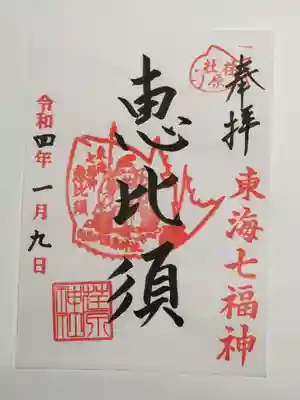 奉拝
東海七福神
恵比須
令和四年一月九日
荏原神社